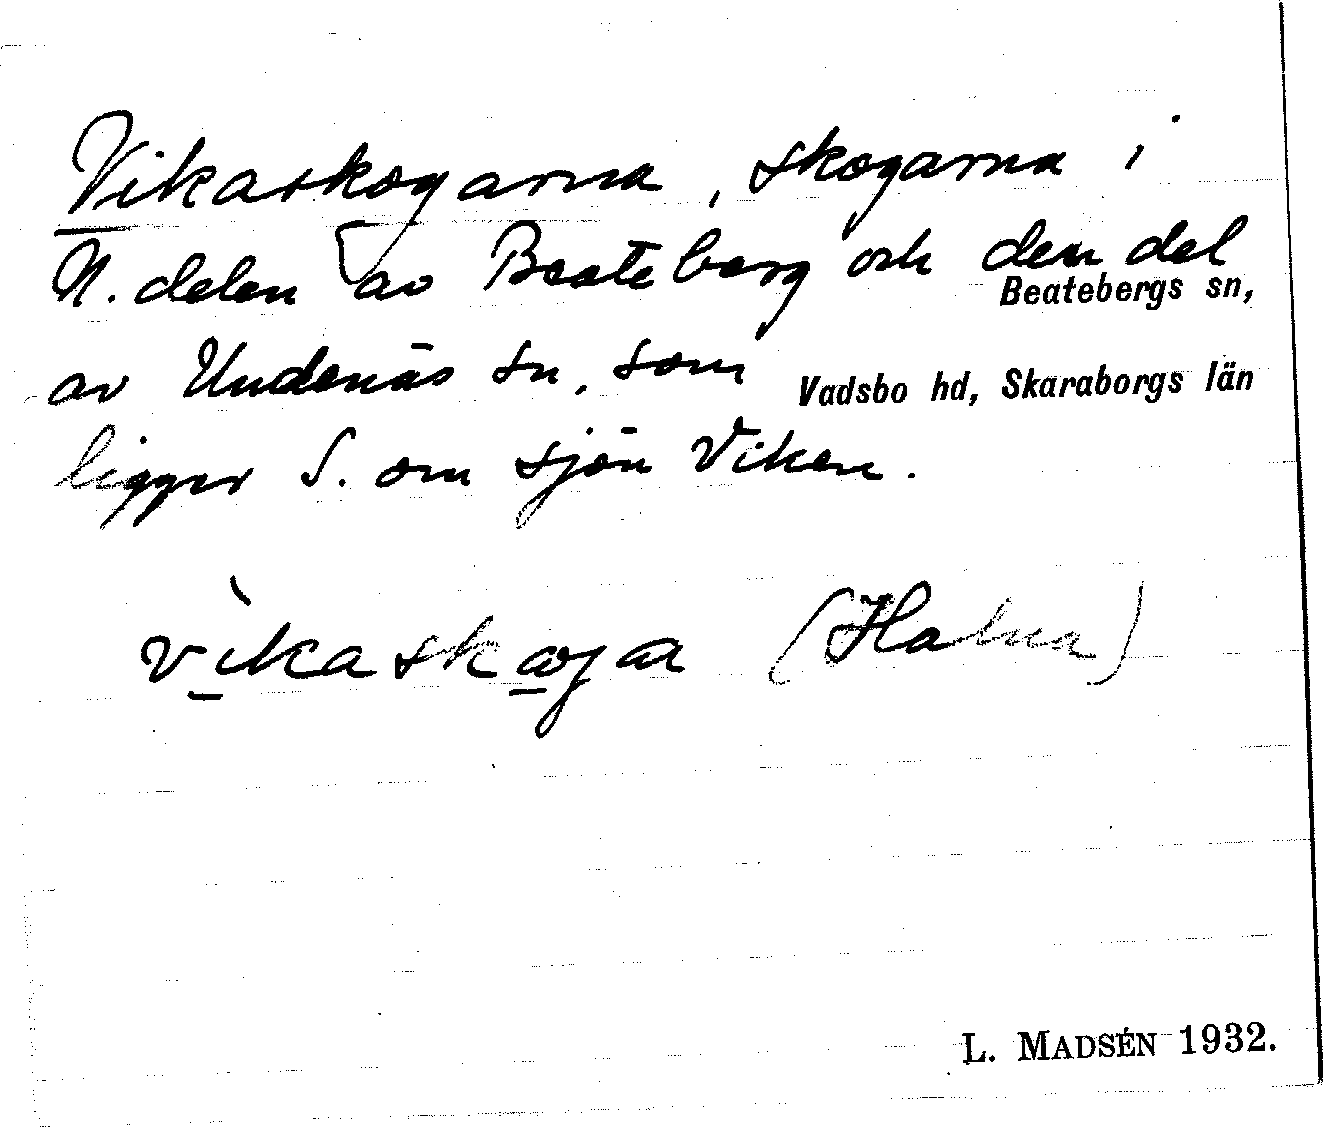 Vikaskogarna, skogarna i
N. delen av Beateberg och den del
Beatebergs sn,
av Undenäs sn, som
Vadsbo hd, Skaraborgs län
ligger S. om sjön Viken.
vìkaskoga (Halna)
L. MADSÉN 1932.